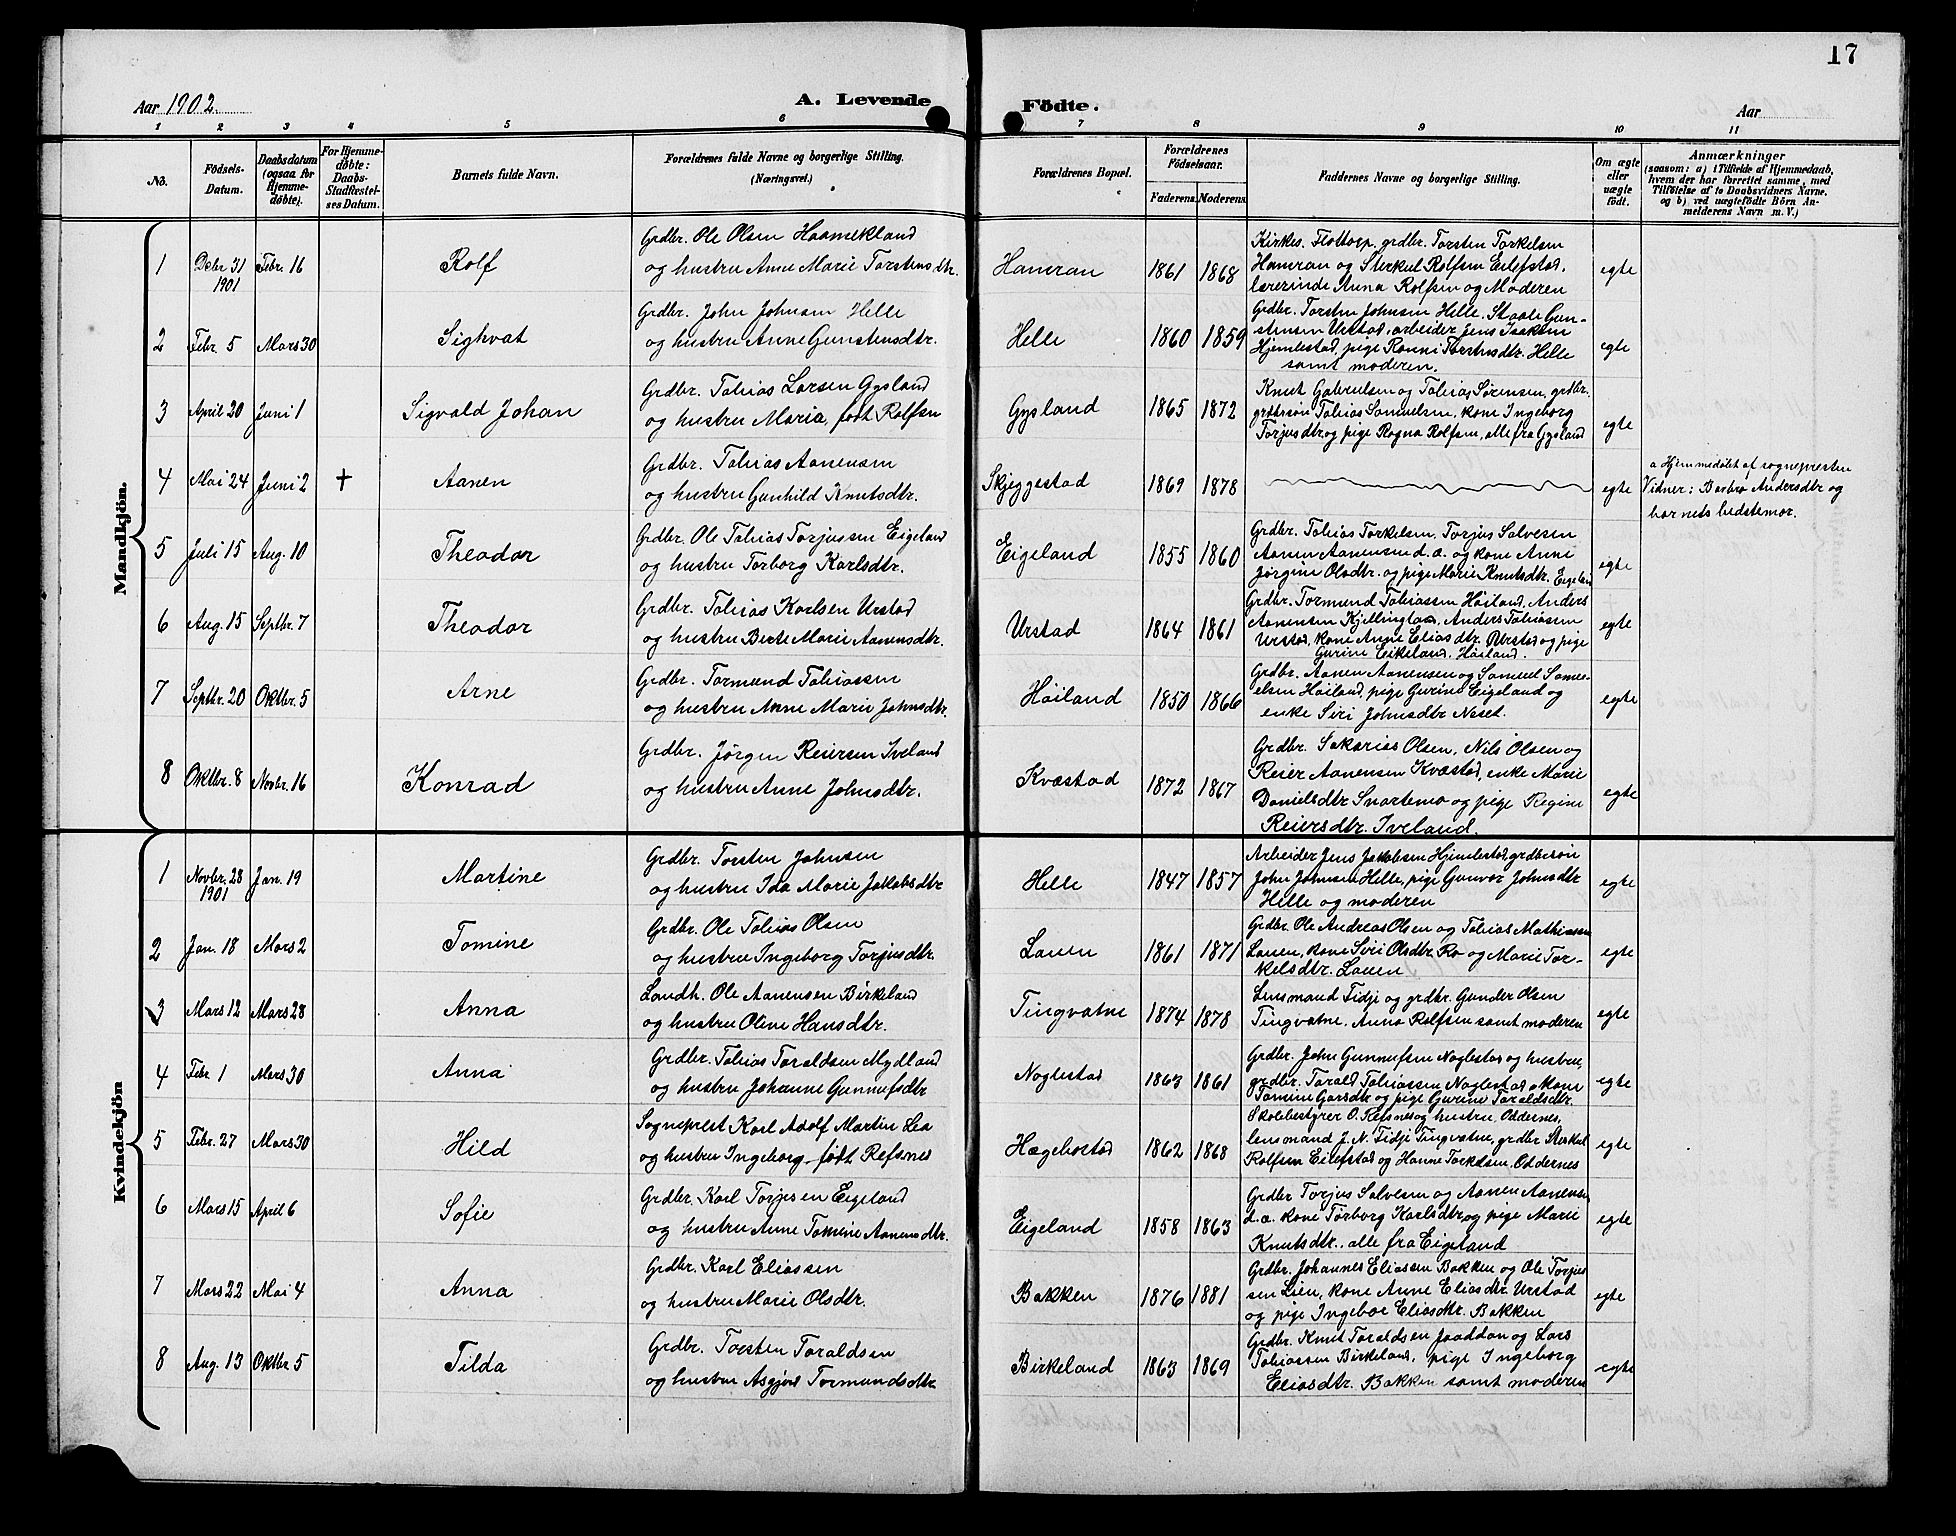 17
Aar 1902.
A. Levende Födte.
Aar
1 2 3 4 5 6 7 8 9 10 11
No.
Födsels-Datum.
Daabsdatum (ogsaa for Hjemme-døbte).
For Hjemme-døbte: Daabs-Stadfæstel-ses Datum.
Barnets fulde Navn.
Forældrenes fulde Navne og borgerlige Stilling. (Næringsvei.)
Forældrenes Bopæl.
Forældrenes Födselsaar.
Faderens. Moderens.
Faddernes Navne og borgerlige Stilling.
Om ægte eller uægte født.
Anmærkninger
(saasom: a) i Tilfælde af Hjemmedaab, hvem der har forrettet samme, med Tilföielse af to Daabsvidners Navne, og b) ved uægtefödte Börn Anmelderens Navn m. V.)
Mandkjön.
1 Decbr 31 1901 Febr. 16 Rolf
Grdbr. Ole Olsen Haamekland
og hustru Anne Marie Torstensdtr.
Hamran 1861 1868
Kirkes. Flottorp, grdbr. Torsten Torkelsen
Hamran og Sterkul Rolfsen Eilefstad,
lærerinde Anna Rolfsen og Moderen
egte
2 Febr. 5 Mars 30 Sighvat
Grdbr. John Johnsen Helle
og hustru Anne Gunstensdtr.
Helle 1860 1859
Grdbr. Torsten Johnsen Helle, Staale Gun-
stensen Urstad, arbeider Jens Isaksen
Hjemlestad, pige Ronni Torstensdtr. Helle
samt moderen.
egte
3 April 20 Juni 1 Sigvald Johan
Grdbr. Tobias Larsen Gysland
og hustru Maria, født Rolfsen
Gysland 1865 1872
Knut Gabrielsen og Tobias Sørensen, grdbr.
grdbrsøn Tobias Samuelsen, kone Ingeborg
Torjusdtr og pige Ragna Rolfsen, alle fra Gysland
egte
4 Mai 24 Juni 2 + Aanen
Grdbr. Tobias Aanensen
og hustru Gunhild Knutsdtr.
Skjeggestad 1869 1878
egte
a Hjemmedøbt af sognepresten
Vidner: Barbro Andersdtr og
barnets bedstemor.
5 Juli 15 Aug. 10 Theodor
Grdbr. Ole Tobias Torjussen Eigeland
og hustru Torborg Karlsdtr.
Eigeland 1855 1860
Grdbr. Tobias Torkelsen, Torjus Salvesen
Aanen Aanensen d. æ. og kone Anne
Jørgine Olsdtr. og pige Marie Knutsdtr. Eigeland
egte
6 Aug. 15 Septbr. 7 Theodor
Grdbr. Tobias Karlsen Urstad
og hustru Berte Marie Aanensdtr.
Urstad 1864 1861
Grdbr. Tormund Tobiassen Høiland, Anders
Aanensen Kjellingland, Anders Tobiassen
Urstad, kone Anne Eliasdtr. Urstad og pige
Gurine Eikeland, Høiland.
egte
7 Septbr. 20 Oktbr. 5 Arne
Grdbr. Tormund Tobiassen
og hustru Anne Marie Johnsdtr.
Høiland 1850 1866
Grdbr. Aanen Aanensen og Samuel Samu-
elsen Høiland, pige Gurine Eigeland og
enke Siri Johnsdtr Neset.
egte
8 Oktbr. 8 Novbr. 16 Konrad
Grdbr. Jørgen Reiersen Iveland
og hustru Anne Johnsdtr.
Kvæstad 1872 1867
Grdbr. Sakarias Olsen, Nils Olsen og
Reier Aanensen Kvæstad, enke Marie
Danielsdtr Snartemo og pige Regine
Reiersdtr. Iveland.
egte
Kvindekjön
1 Novbr. 28 1901 Jan. 19 Martine
Grdbr. Torsten Johnsen
og hustru Ida Marie Jakobsdtr
Helle 1847 1857
Arbeider Jens Jakobsen Hjemlestad, grdbrsøn
John Johnsen Helle, pige Gunvor Johnsdtr
Helle og moderen
egte
2 Jan. 18 Mars 2 Tomine
Grdbr. Ole Tobias Olsen
og hustru Ingeborg Torjusdtr.
Lauen 1861 1871
Grdbr. Ole Andreas Olsen og Tobias Mathiassen
Lauen, kone Siri Olsdtr. Ro og Marie Tor-
kelsdtr. Lauen
egte
3 Mars 12 Mars 28 Anna
Landh. Ole Aanensen Birkeland
og hustru Oline Hansdtr.
Tingvatne 1874 1878
Lensmand Fidje og grdbr. Gunder Olsen
Tingvatne, Anna Rolfsen samt moderen
egte
4 Febr. 1 Mars 30 Anna
Grdbr. Tobias Taraldsen Mydland
og hustru Johanne Gunnufsdtr
Noglestad 1863 1861
Grdbr. John Gunnufsen Noglestad og hustru,
grdbr. Tarald Tobiassen Noglestad, kone
Tomine Larsdtr og pige Gurine Taraldsdtr.
egte
5 Febr. 27 Mars 30 Hild
Sogneprest Karl Adolf Martin Lea
og hustru Ingeborg, født Refsnes
Hægebostad 1862 1868
Skolebestyrer O. Refsnes og hustru, Oddernes,
lensmand J. N. Fidje Tingvatne, grdbr Sterkul
Rolfsen Eilefstad og Hanne Torkelsen, Oddernes
egte
6 Mars 15 April 6 Sofie
Grdbr. Karl Torjusen Eigeland
og hustru Anne Tomine Aanensdtr.
Eigeland 1858 1863
Grdbr Torjus Salvesen og Aanen Aanensen
d. æ. kone Torborg Karlsdtr og pige Marie
Knutsdtr., alle fra Eigeland
egte
7 Mars 22 Mai 4 Anna
Grdbr. Karl Eliassen
og hustru Marie Olsdtr.
Bakken 1876 1881
Grdbr. Johannes Eliassen Bakken og Ole Torjus
sen Lien, kone Anne Eliasdtr. Urstad
og pige Ingeboe Eliasdtr. Bakken
egte
8 Aug. 13 Oktbr. 5 Tilda
Grdbr. Torsten Taraldsen
og hustru Asgjerd Tormundsdtr.
Birkeland 1863 1869
Grdbr. Knut Taraldsen Jaaddan og Lars
Tobiassen Birkeland, pige Ingeborg
Eliasdtr. Bakken samt moderen
egte